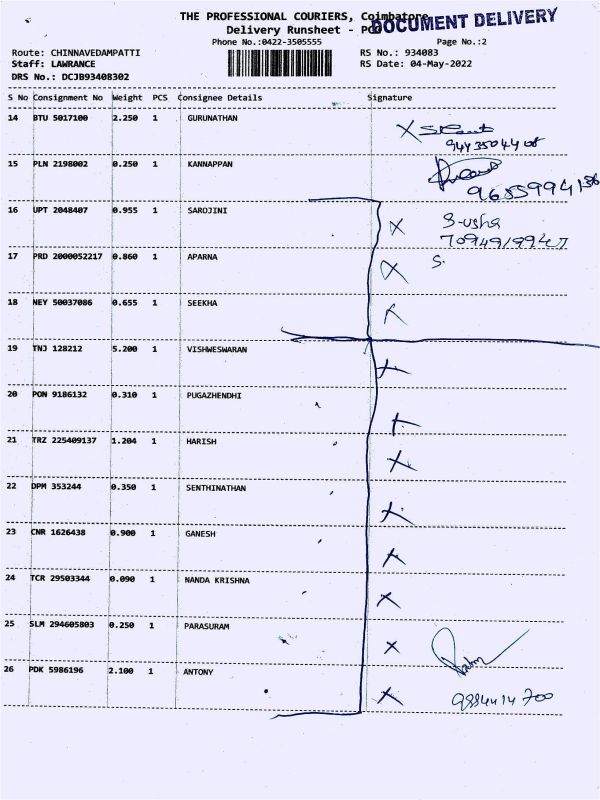 THE PROFESSIONAL COURIERS, Coimbatore
DOCUMENT DELIVERY
Delivery Runsheet - POD
Phone No.:0422-3505555 Page No.:2
Route: CHINNAVEDAMPATTI RS No.: 934083
Staff: LAWRANCE RS Date: 04-May-2022
DRS No.: DCJB93408302
S No Consignment No Weight PCS Consignee Details Signature
14 BTU 5017100 2.250 1 GURUNATHAN
15 PLN 2198002 0.250 1 KANNAPPAN
16 UPT 2048407 0.955 1 SAROJINI S-usha
17 PRD 2000052217 0.860 1 APARNA S.
18 NEY 50037086 0.655 1 SEEKHA
19 TNJ 128212 5.200 1 VISHWESWARAN
20 PON 9186132 0.310 1 PUGAZHENDHI
21 TRZ 225409137 1.204 1 HARISH
22 DPM 353244 0.350 1 SENTHINATHAN
23 CNR 1626438 0.900 1 GANESH
24 TCR 29503344 0.090 1 NANDA KRISHNA
25 SLM 294605803 0.250 1 PARASURAM
26 PDK 5986196 2.100 1 ANTONY
9884414700